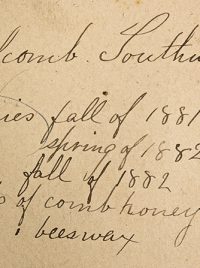 comb. South
ies fall of 1881
spring of 1882
fall of 1882
s of comb honey
" beeswax